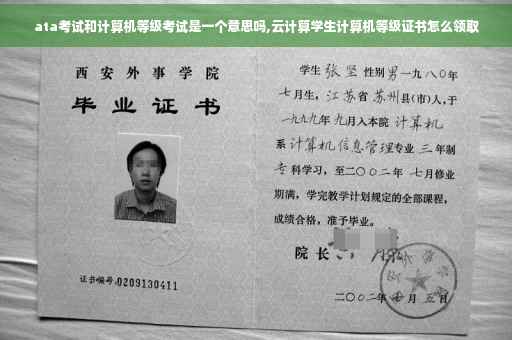 ata考试和计算机等级考试是一个意思吗,云计算学生计算机等级证书怎么领取
西安外事学院
毕业证书
证书编号:0209130411
学生 张坚 性别男 一九八〇年
七月生，江苏省 苏州县(市)人，于
一九九九年 九月入本院 计算机
系 计算机信息管理专业 三年制
专科学习，至二〇〇二年 七月修业
期满，学完教学计划规定的全部课程，
成绩合格，准予毕业。
院长
二〇〇二年 月 五日